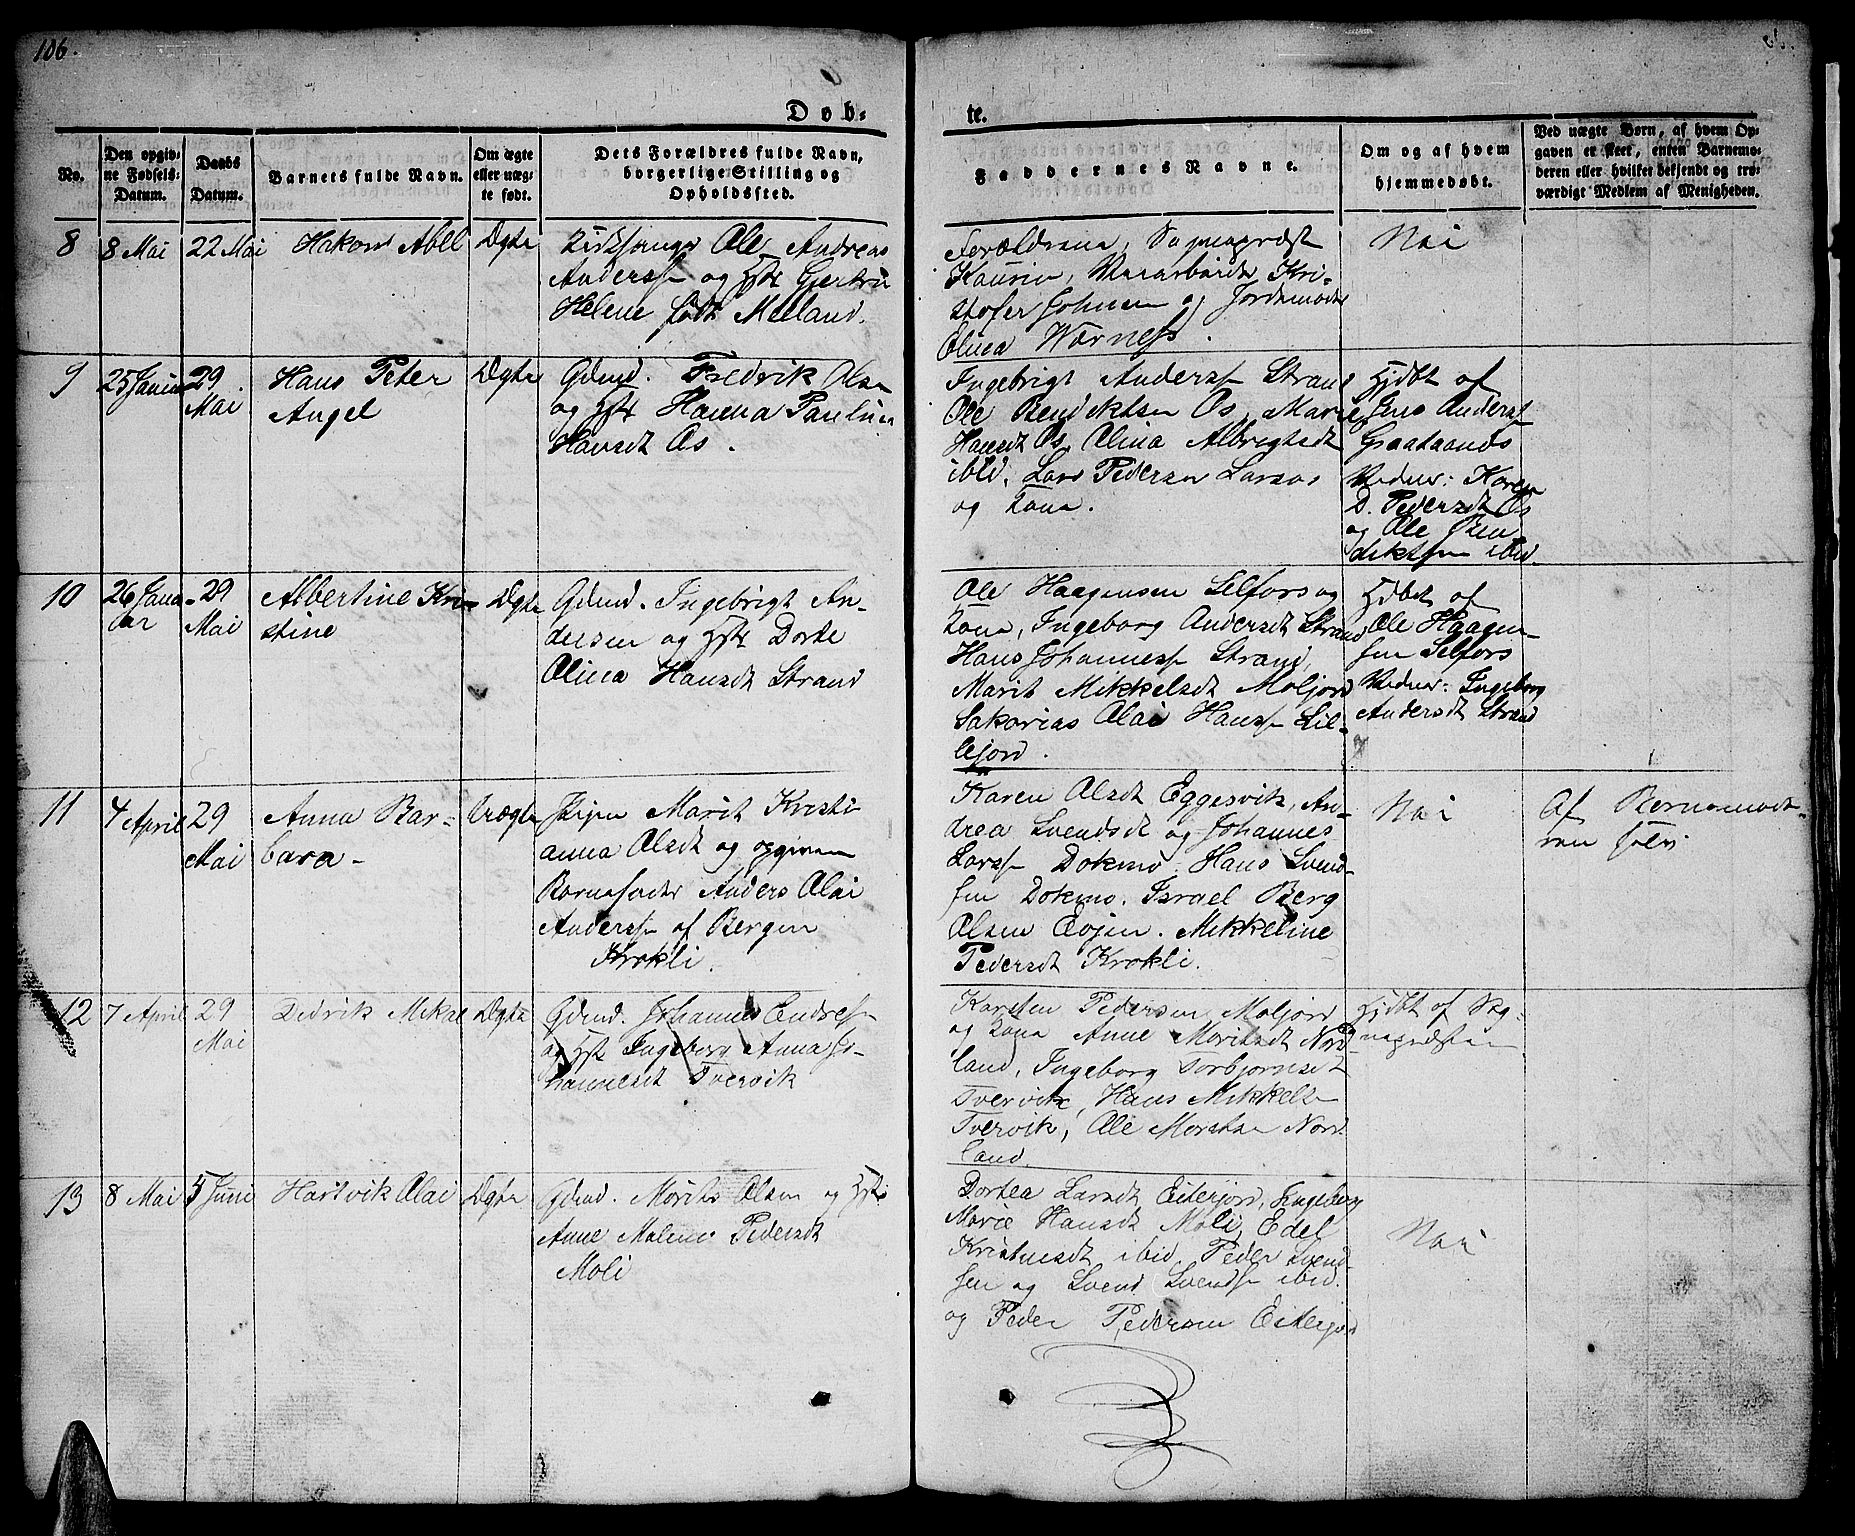 106.
Døb-
te.
No.
Den opgiv-
ne Fødsels-
Datum.
Daabs
Datum.
Barnets fulde Navn.
Om ægte
eller uæg-
te født.
Dets Forældres fulde Navn,
borgerlige Stilling og
Opholdssted.
Faddernes Navne.
Om og af hvem
hjemmedøbt.
Ved uægte Børn, af hvem Op-
gaven er skeet, enten Barnemo-
deren eller hvilket bekjendt og tro-
værdigt Medlem af Menigheden.
8
8 Mai
22 Mai
Hakon Abel
Ægte
Kirksanger Ole Andreas
Anderss og Hst Gjertru
Helene født Meeland.
Forældrene, Sognepræst
Kaurin, Kri-
stofer Johnsen og Jordemoder
Elina Wærness.
Nei
9
25 Januar
29
Mai
Hans Peter
Angel
Ægte
Gdmd. Fredrik Olsen
og Hst Hanna Pauline
Hansdt Os.
Ingebrigt Anderss Strand
Ole Bendiktsen Os, Marie
Hansdt Os, Olina Albrigtsdt
ibid, Lars Pedersen Larsos
og Kone.
Hjdbt af
Jens Anderss
Graataanes
Vidner: Karen
D. Pedersdt Os
og Ole Ben
diktsen ibid.
10
26 Janu
ar
29
Mai
Albertine Kri-
stine
Ægte
Gdmd. Ingebrigt An-
dersen og Hst Dorte
Olina Hansdt Strand
Ole Haagensen Selfors og
Kone, Ingeborg Andersdt Strand
Hans Johanness Strand,
Marit Mikkelsdt Moljord
Sakarias Olai Hanss Lil-
lejord.
Hjdbt af
Ole Haagen-
sen Selfors
Vidner: Ingeborg
Andersdt Strand
11
4 April
29
Mai
Anna Bar-
bara
Uægte
Pigen Marit Kristi
anna Olsdt og opgiven
Barnefader Anders Olai
Anderss af Bergen
Krokli.
Karen Olsdt Eggesvik, An-
drea Svendsdt og Johannes
Larss Dokmo. Hans Svend-
sen Dokmo. Israel Berg
Olsen Evjen. Mikkeline
Pedersdt Krokli.
Nei
Af Barnemode-
ren selv
12
7 April
29
Mai
Didrik Mikal
Ægte
Gdmd. Johannes Endress
og Hst Ingeborg Anna Jo-
hannesdt Tvervik
Karsten Pedersen Moljord
og Kone Anne Moritsdt Nord-
land, Ingeborg Torbjørnsdt
Tvervik, Hans Mikkels
Tvervik, Ole Moritsen Nord
land.
Hjdbt af Sog-
nepræsten
13
8 Mai
5 Juni
Hartvik Olai
Ægte
Gdmd. Morits Olsen og Hst
Anne Malene Pedersdt
Moli
Dortea Larsdt Eiterjord, Ingeborg
Marie Hansdt Moli, Edel
Kristensdt ibid, Peder Svend-
sen og Svend Svends ibid.
og Peder Pedersen Eiterjord
Nei